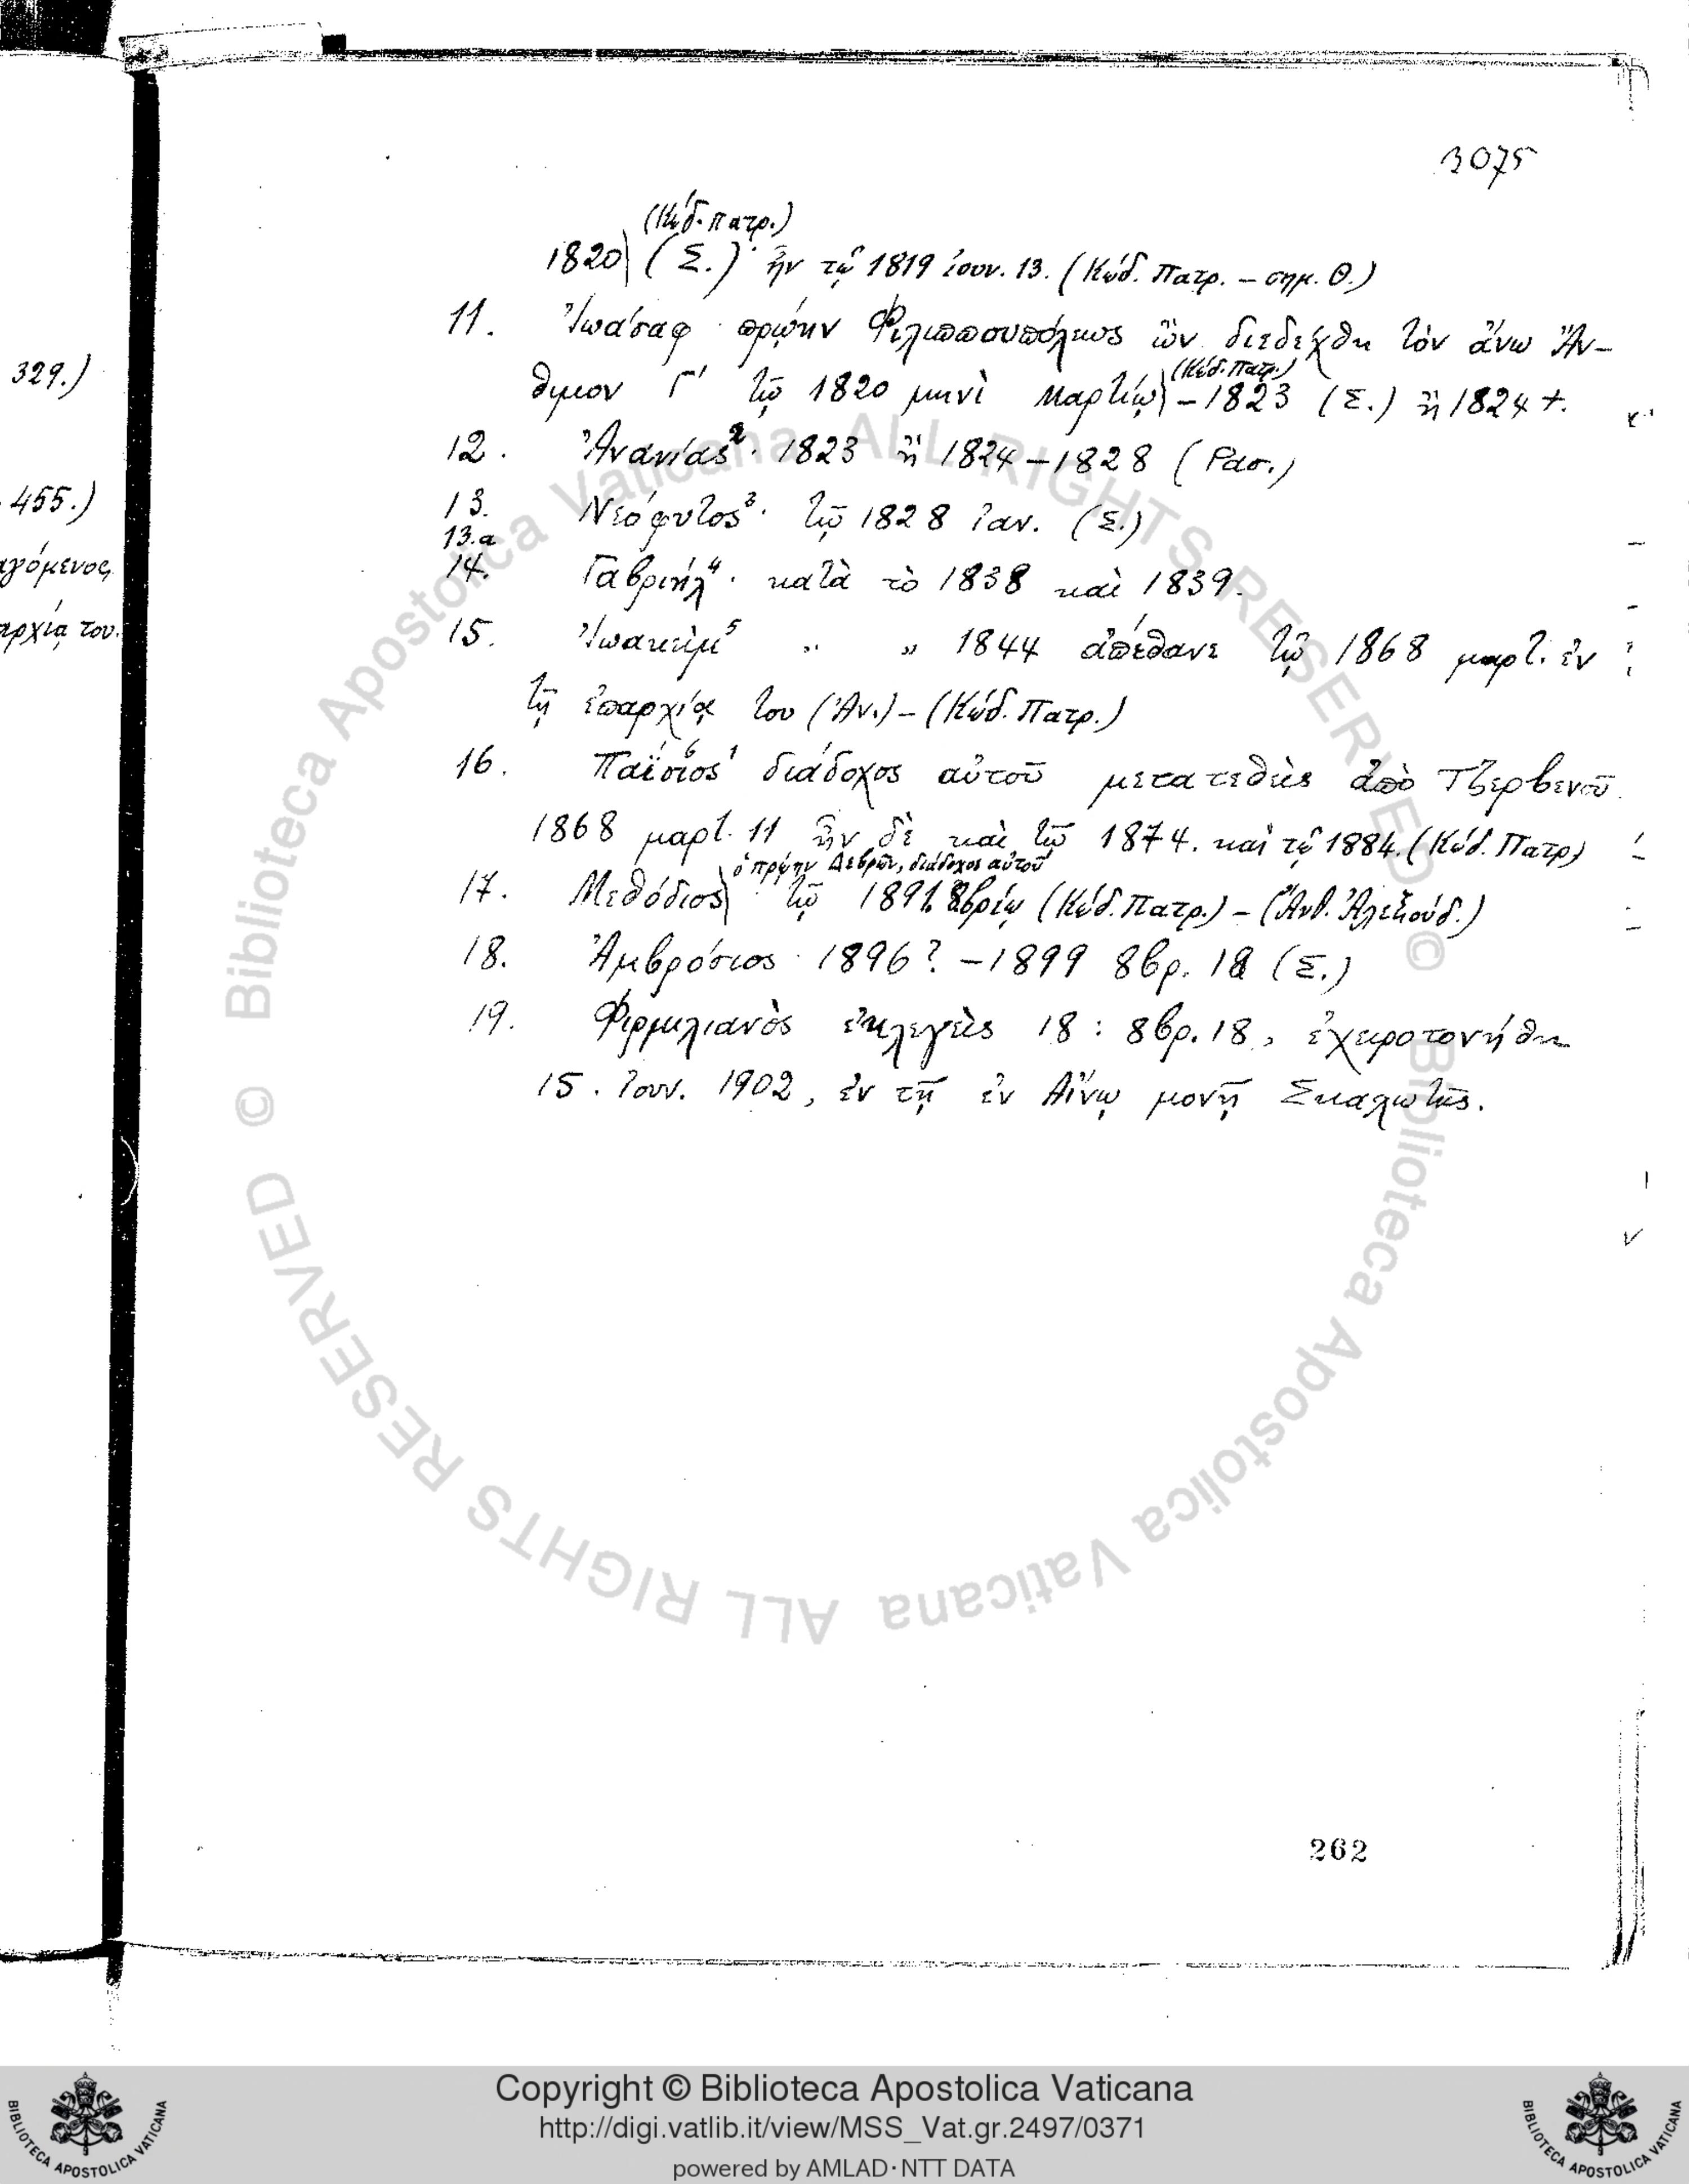 3075
(Κώδ. Πατρ.)
1820 (Σ.) ἦν τῷ 1819 ἰουν. 13. (Κώδ. Πατρ. – σημ. Θ.)
11. Ἰωάσαφ πρώην Φιλιππουπόλεως ὢν διεδέχθη τὸν ἄνω Ἄν-
329.)
(Κώδ. Πατρ.)
θιμον Γ' τῷ 1820 μηνὶ Μαρτίῳ – 1823 (Σ.) ἢ 1824 +.
12. Ἀνανίας 2. 1823 ἢ 1824 – 1828 (Ρασ.)
455.)
13. Νεόφυτος 3. τῷ 1828 ἰαν. (Σ.)
13.α
14. Γαβριήλ 4. κατὰ τὸ 1838 καὶ 1839.
αγόμενος
15. Ἰωακεὶμ 5 „ „ 1844 ἀπέθανε τῷ 1868 μαρτ. ἐν
αρχία του.
τῇ ἐπαρχίᾳ του (Ἀν.) – (Κώδ. Πατρ.)
16. Παΐσιος 6 διάδοχος αὐτοῦ μετατεθεὶς ἀπὸ Τζερβενοῦ
1868 μαρτ. 11 ἦν δὲ καὶ τῷ 1874. καὶ τῷ 1884. (Κώδ. Πατρ)
ὁ πρώην Δεβρῶν, διάδοχος αὐτοῦ
17. Μεθόδιος τῷ 1891. 8βρίῳ (Κώδ. Πατρ.) – (Ἄνθ. Ἀλεξούδ.)
18. Ἀμβρόσιος 1896? – 1899 8βρ. 18 (Σ.)
19. Φιρμιλιανὸς ἐκλεγεὶς 18 : 8βρ. 18, ἐχειροτονήθη
15. Ἰουν. 1902, ἐν τῇ ἐν Αἴνῳ μονῇ Σκαλωτῆς.
262
© Biblioteca Apostolica Vaticana ALL RIGHTS RESERVED © Biblioteca Apostolica Vaticana ALL RIGHTS RESERVED
Copyright © Biblioteca Apostolica Vaticana
http://digi.vatlib.it/view/MSS_Vat.gr.2497/0371
powered by AMLAD·NTT DATA
BIBLIOTECA APOSTOLICA VATICANA
BIBLIOTECA APOSTOLICA VATICANA